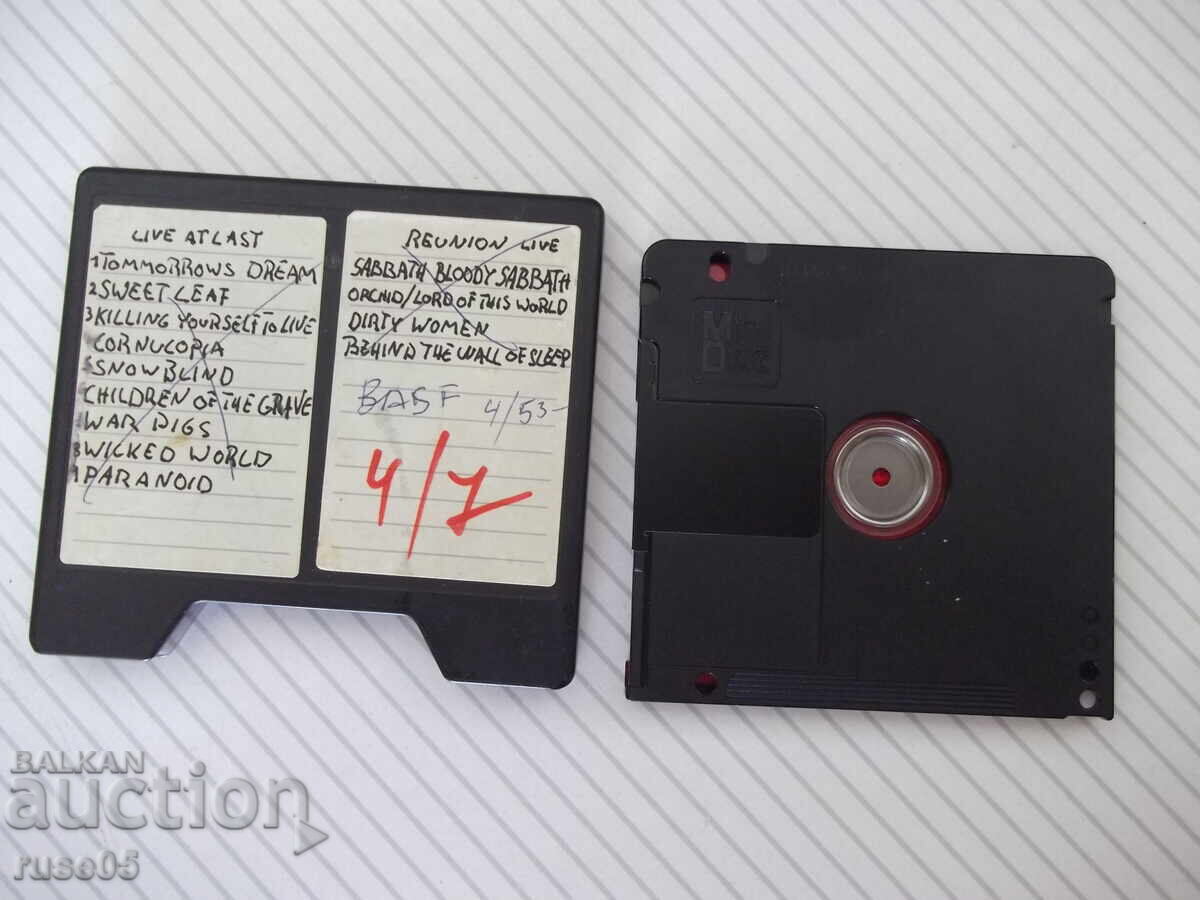 LIVE AT LAST
1 TOMMORROWS DREAM
2 SWEET LEAF
3 KILLING YOURSELF TO LIVE
CORNUCOPIA
5 SNOWBLIND
CHILDREN OF THE GRAVE
WAR PIGS
8 WICKED WORLD
9 PARANOID
REUNION LIVE
SABBATH BLOODY SABBATH
ORCHID/LORD OF THIS WORLD
DIRTY WOMEN
BEHIND THE WALL OF SLEEP
BASF 4/53-
4/7
Mini
Disc
BALKAN
auction
ruse05